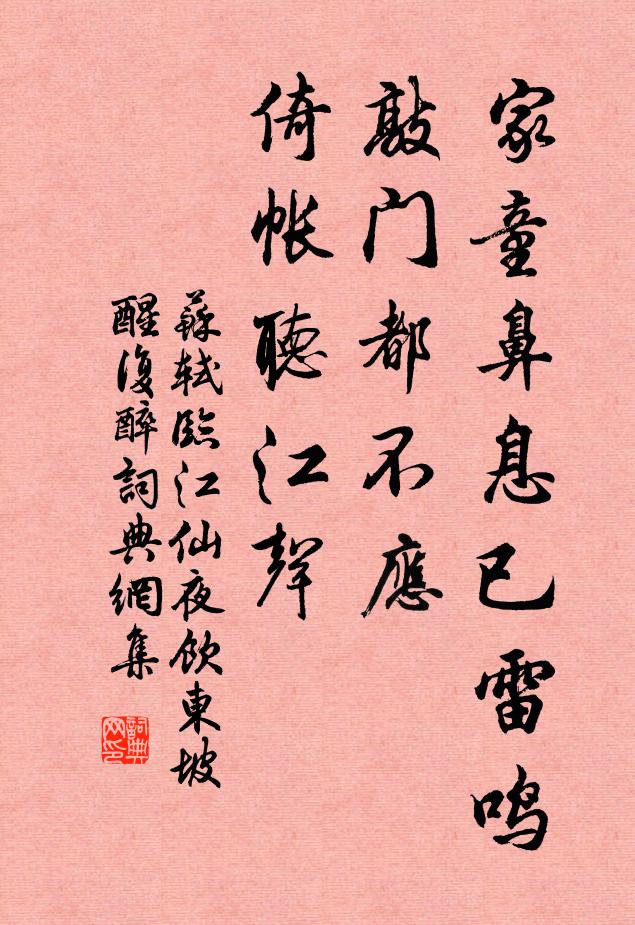 家童鼻息已雷鸣
敲门都不應
倚帐聽江聲
蘇軾臨江仙夜飲東坡
醒復醉詞典網集
詞典网印